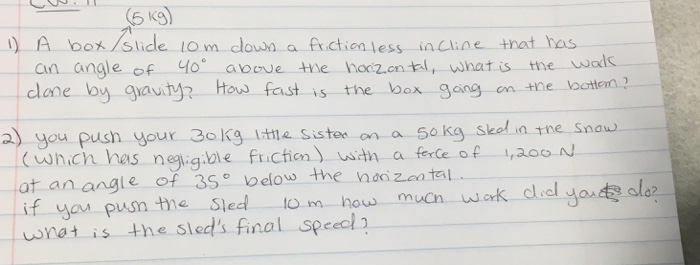 (5 kg)
1) A box slide 10m down a frictionless incline that has
an angle of 40° above the horizontal, what is the work
done by gravity? How fast is the box going on the bottom?
2) you push your 30kg little sister on a 50kg sled in the snow
(which has negligible friction) with a force of 1,200 N
at an angle of 35° below the horizontal.
if you push the sled 10 m how much work did you do?
what is the sled's final speed?